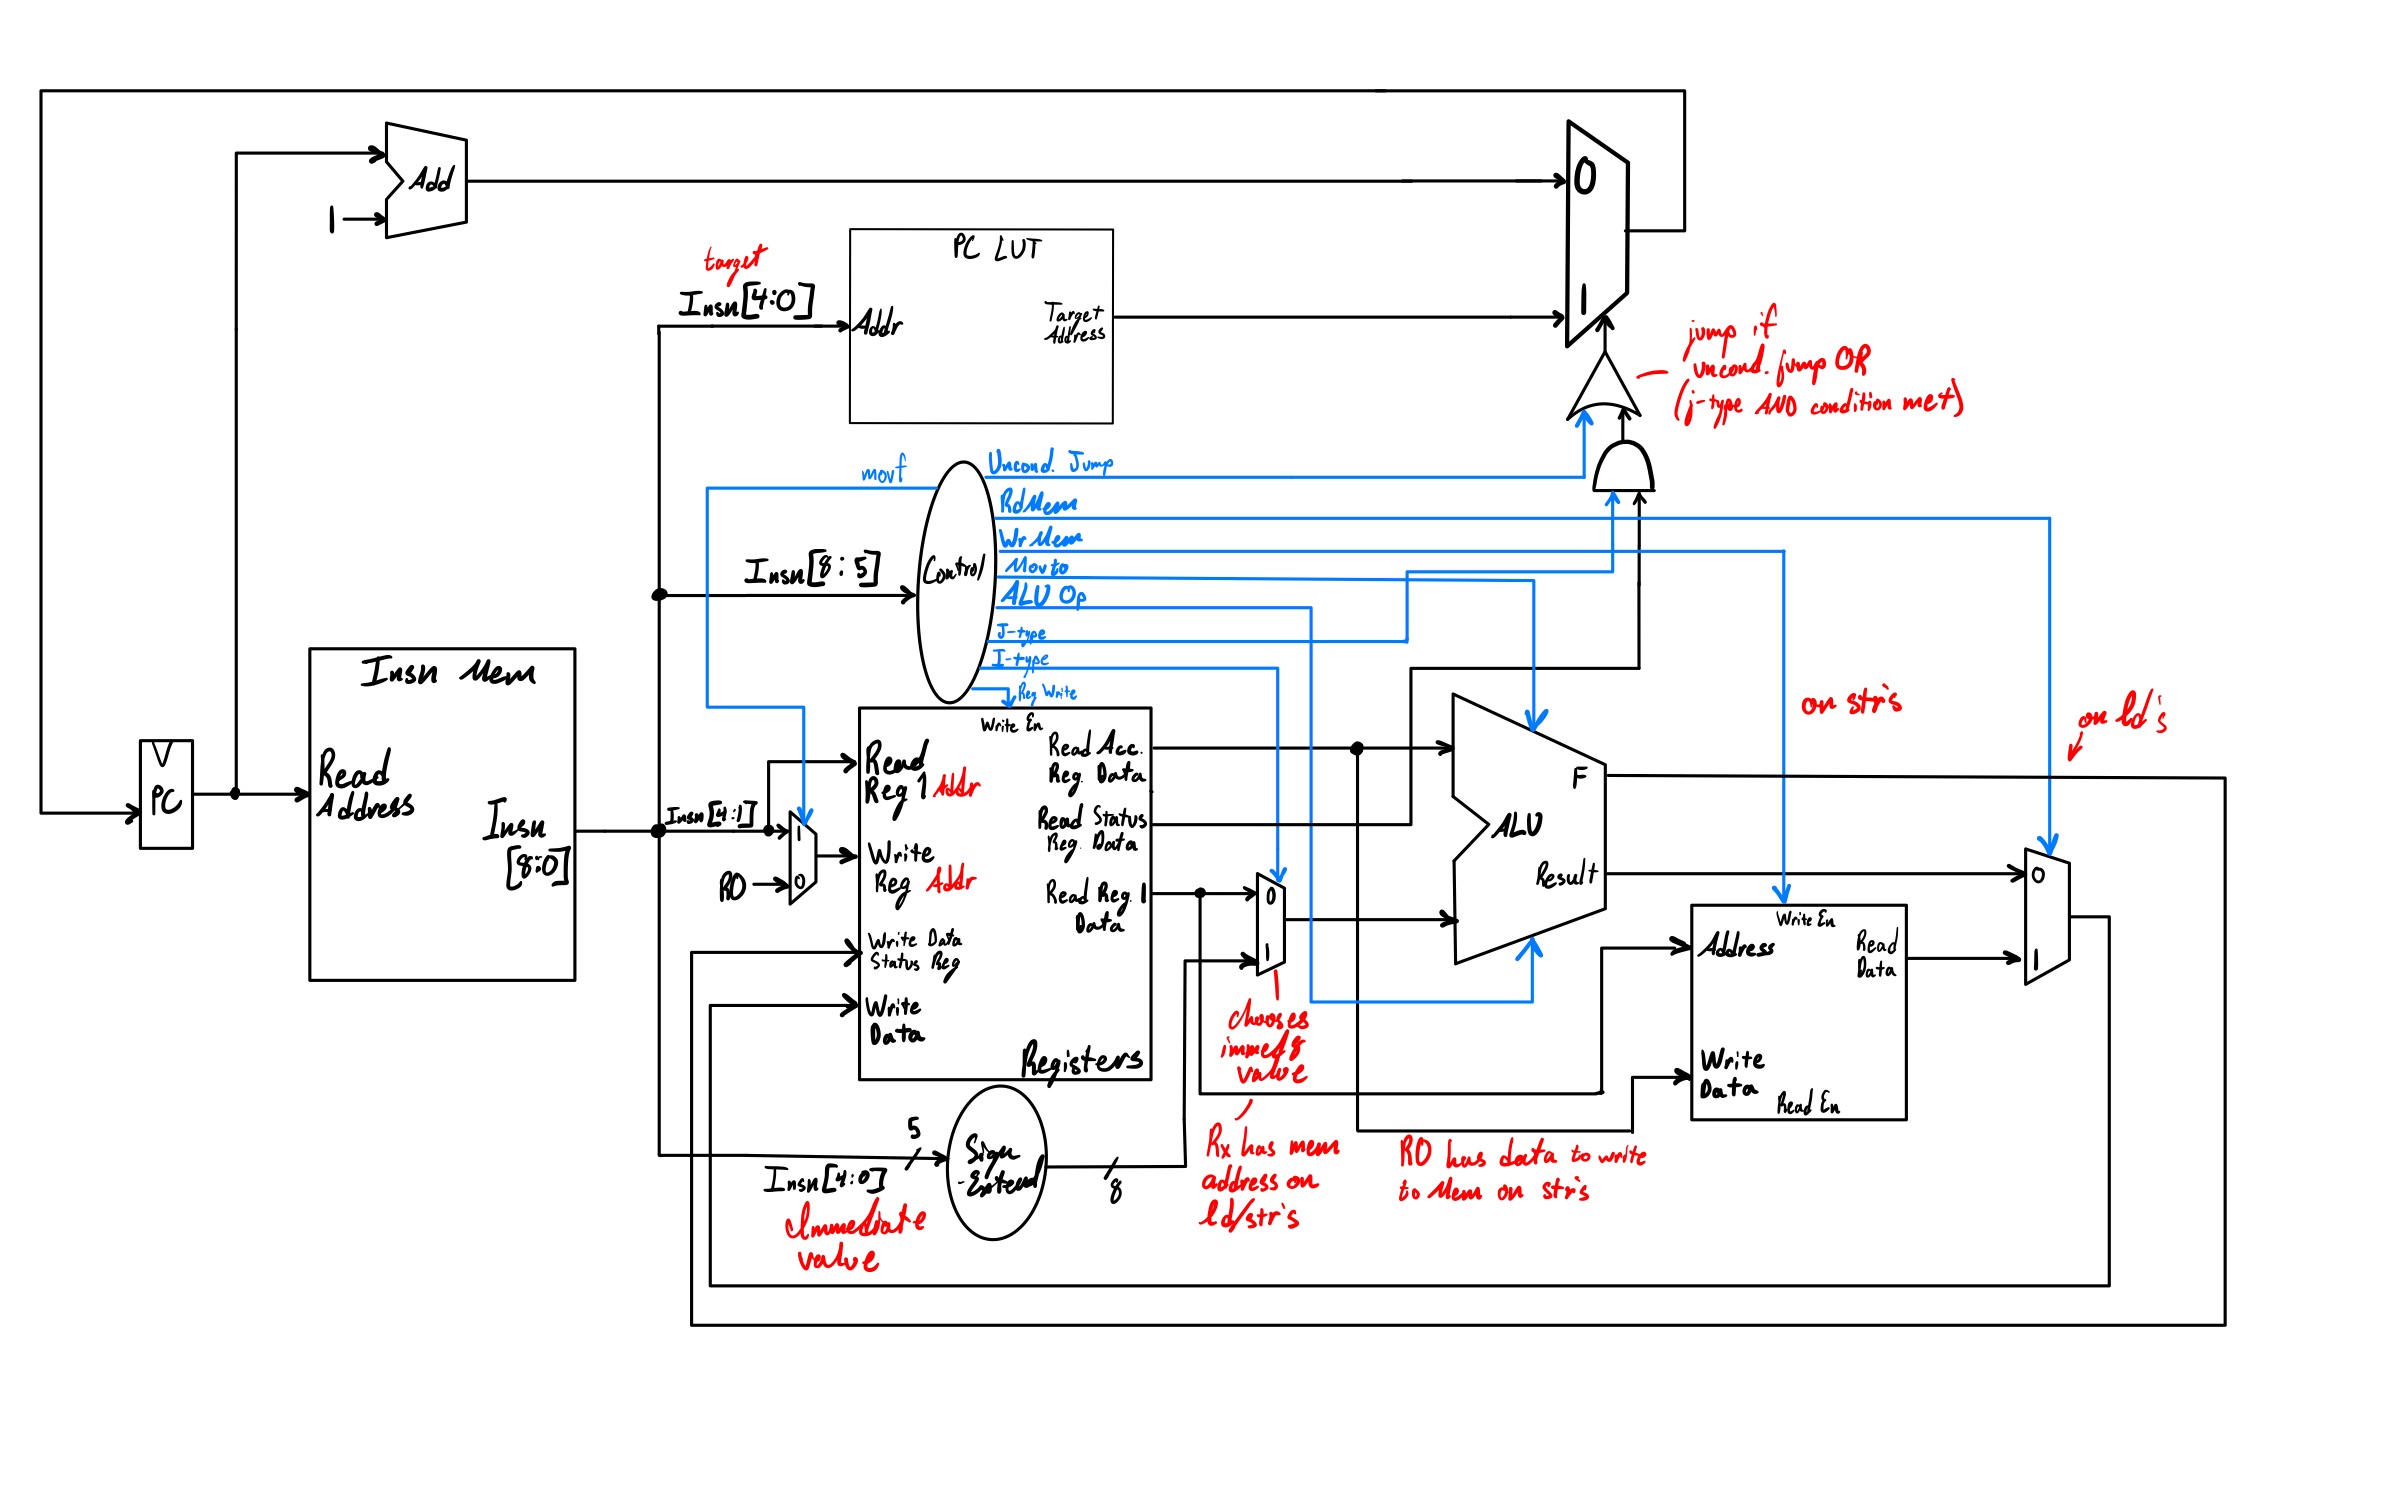 Add
1
0
1
PC LUT
target
Insn[4:0]
Addr
Target
Address
jump if
uncond. jump OR
(j-type AND condition met)
movf
Uncond. Jump
RdMem
WrMem
Movto
ALU Op
J-type
I-type
Reg Write
Insn[8:5]
Control
Insn Mem
Read
Address
Insn
[8:0]
PC
Insn[4:1]
1
0
R0
Write En
Read
Reg 1 Addr
Write
Reg Addr
Write Data
Status Reg
Write
Data
Read Acc.
Reg. Data
Read Status
Reg. Data
Read Reg. 1
Data
Registers
0
1
chooses
immed8
value
F
ALU
Result
on str's
on ld's
Write En
Address
Read
Data
Write
Data
Read En
0
1
5
Sign
-Extend
8
Insn[4:0]
Immediate
value
Rx has mem
address on
ld/str's
R0 has data to write
to Mem on str's